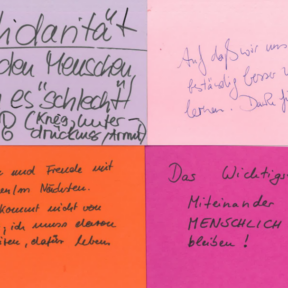 lidarität
den Menschen
es "schlecht"
(Krieg, Unter-
drückung, Armut)
Auf daß wir uns
beständig besser
lernen. Danke
und Freude mit
Nächsten.
kommt nicht von
, ich muss daran
dafür leben
Das Wichtigs
Miteinander
MENSCHLICH
bleiben!